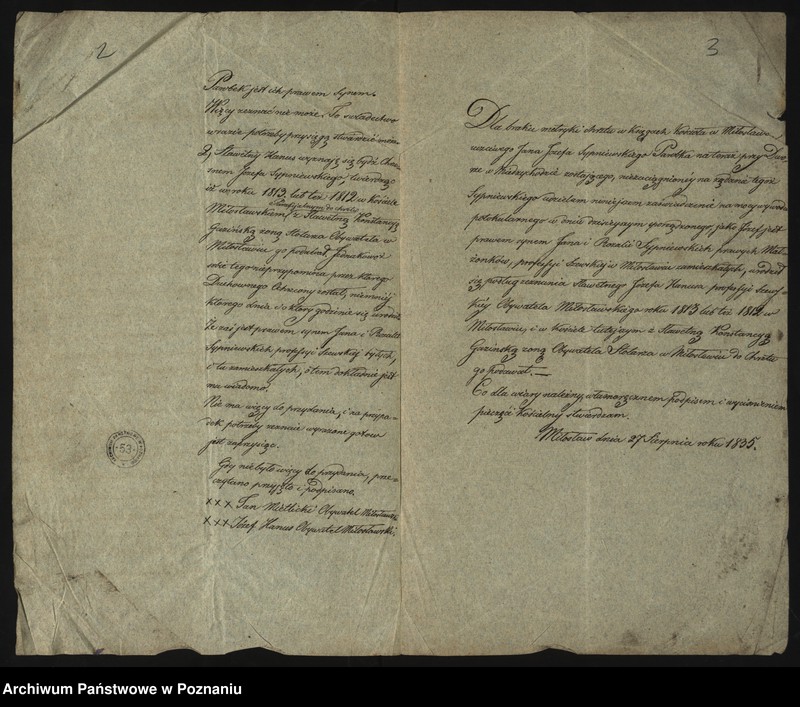 2
Parobek jest ich prawem synem.
Więcy zeznać nie może. To świadectwo
w razie potrzeby przysięgą stwierdzić może
2, Sławetny Hanus wyznaje się bydź Chrze-
snem Józefa Sypniewskiego, twierdząc
iż w roku 1813. lub też 1812 w kościele
Miłosławskiem, z Sławetną Konstancyą
Guzińską żoną Stolarza Obywatela w
Miłosławiu go podawał, Jednakowoż
sobie tego nieprzypomina przez którego
Duchownego Ochrzcony został, niemniéj
którego dnia i o któréj godzinie się urodził
Że zaś jest prawem synem Jana i Rozalii
Sypniewskich professyi Szewskiej byłych,
i tu zamieszkałych, o tem dokładnie jest
mu wiadomo.
Nic ma więcy do przydania, i na przypa-
dek potrzeby zeznanie wyrażone gotów
jest zaprzysiąc.
Gdy nie było więcy do przydania, prze-
czytano przyjęto i podpisano
x x x Jan Mielticki Obywatel Miłosławski
x x x Józef Hanus Obywatel Miłosławski.
53
3
Dla braku metryki chrztu w księgach Kościoła w Miłosławiu
uczciwego Jana Józefa Sypniewskiego Parobka na teraz przy Dwo-
rze w Międzychodzie zostającego, niezaciągnioney na żądanie tegoż
Sypniewskiego udzielam niniejsem zaświadczenie na mocy wywodu
protokularnego w dniu dzisiejszym sporządzonego, jako Józef jest
prawem synem Jana i Rozalii Sypniewskich prawych Mał-
żonków, professyi Szewskiéj w Miłosławiu zamieszkałych, urodził
się podług zeznania Sławetnego Józefa Hanusa professyi Szews-
kiéy Obywatela Miłosławskiego roku 1813 lub też 1812 w
Miłosławiu, i w kościele tutejszym z Sławetną Konstancyą
Guzińską żoną Obywatela Stolarza w Miłosławiu do Chrztu
go podawał.—
Co dla wiary należney, własnoręcznem podpisem i wyciśnieniem
pieczęci Kościelny stwierdzam.
Miłosław dnia 27 Sierpnia roku 1835.
Archiwum Państwowe w Poznaniu